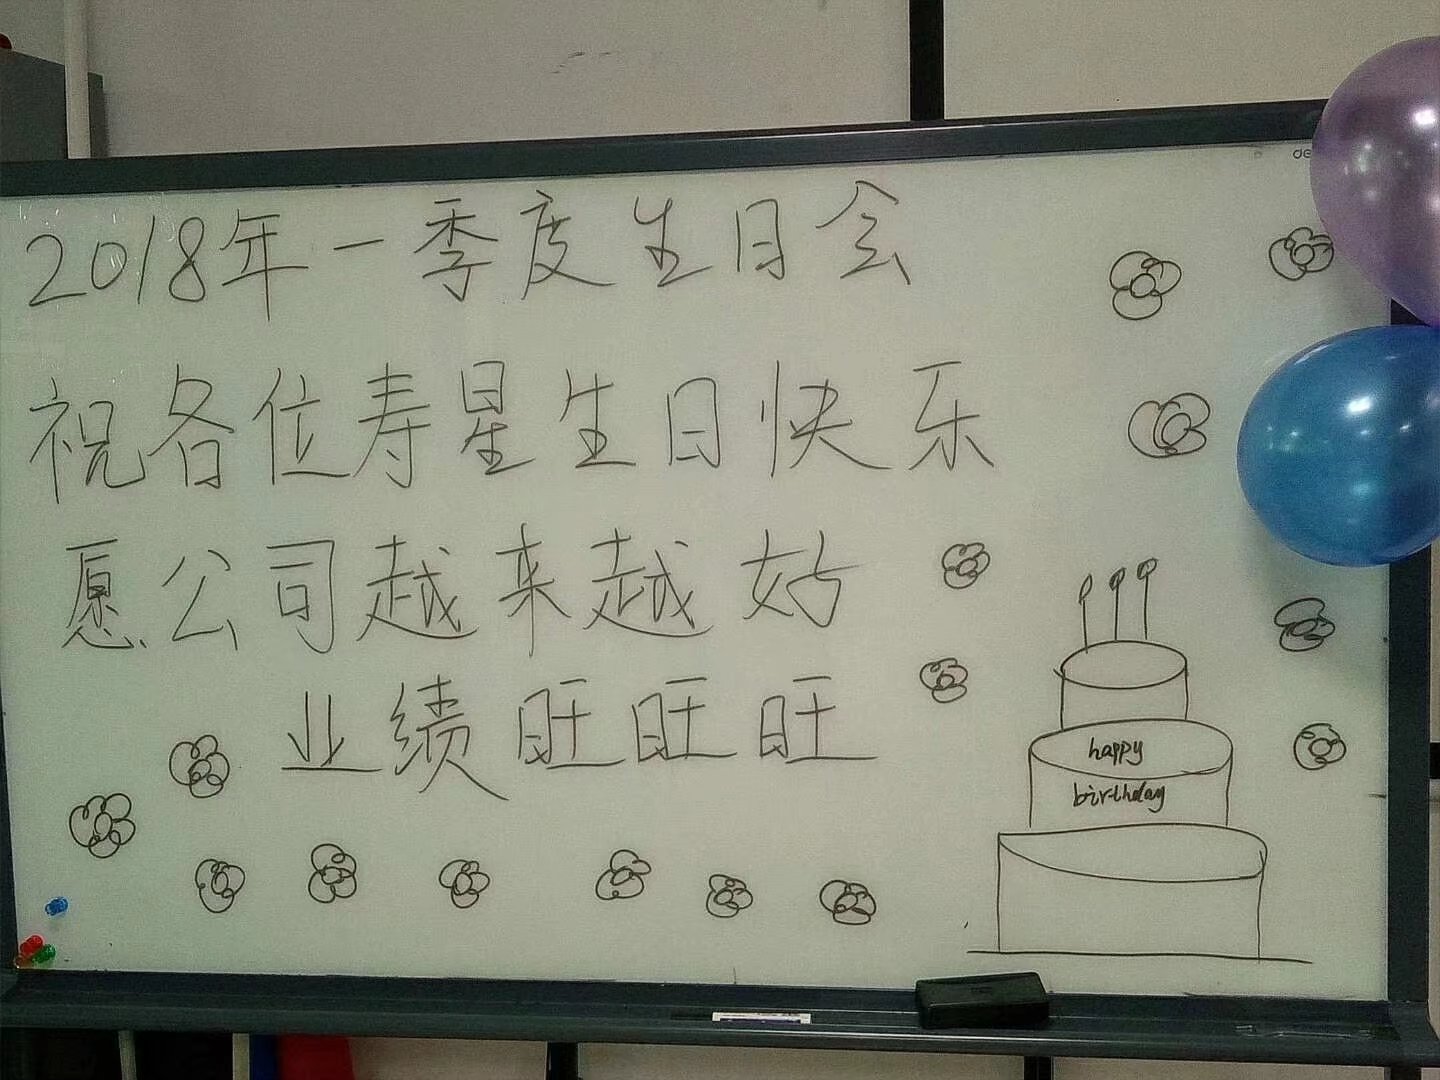 2018年一季度生日会
祝各位寿星生日快乐
愿公司越来越好
业绩旺旺旺
happy
birthday